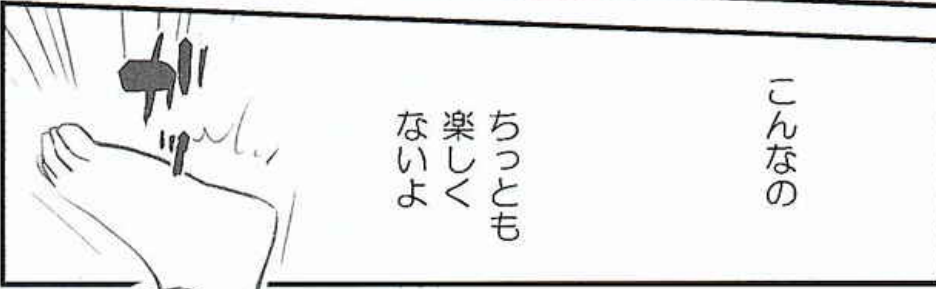 こんなの
ちっとも
楽しく
ないよ